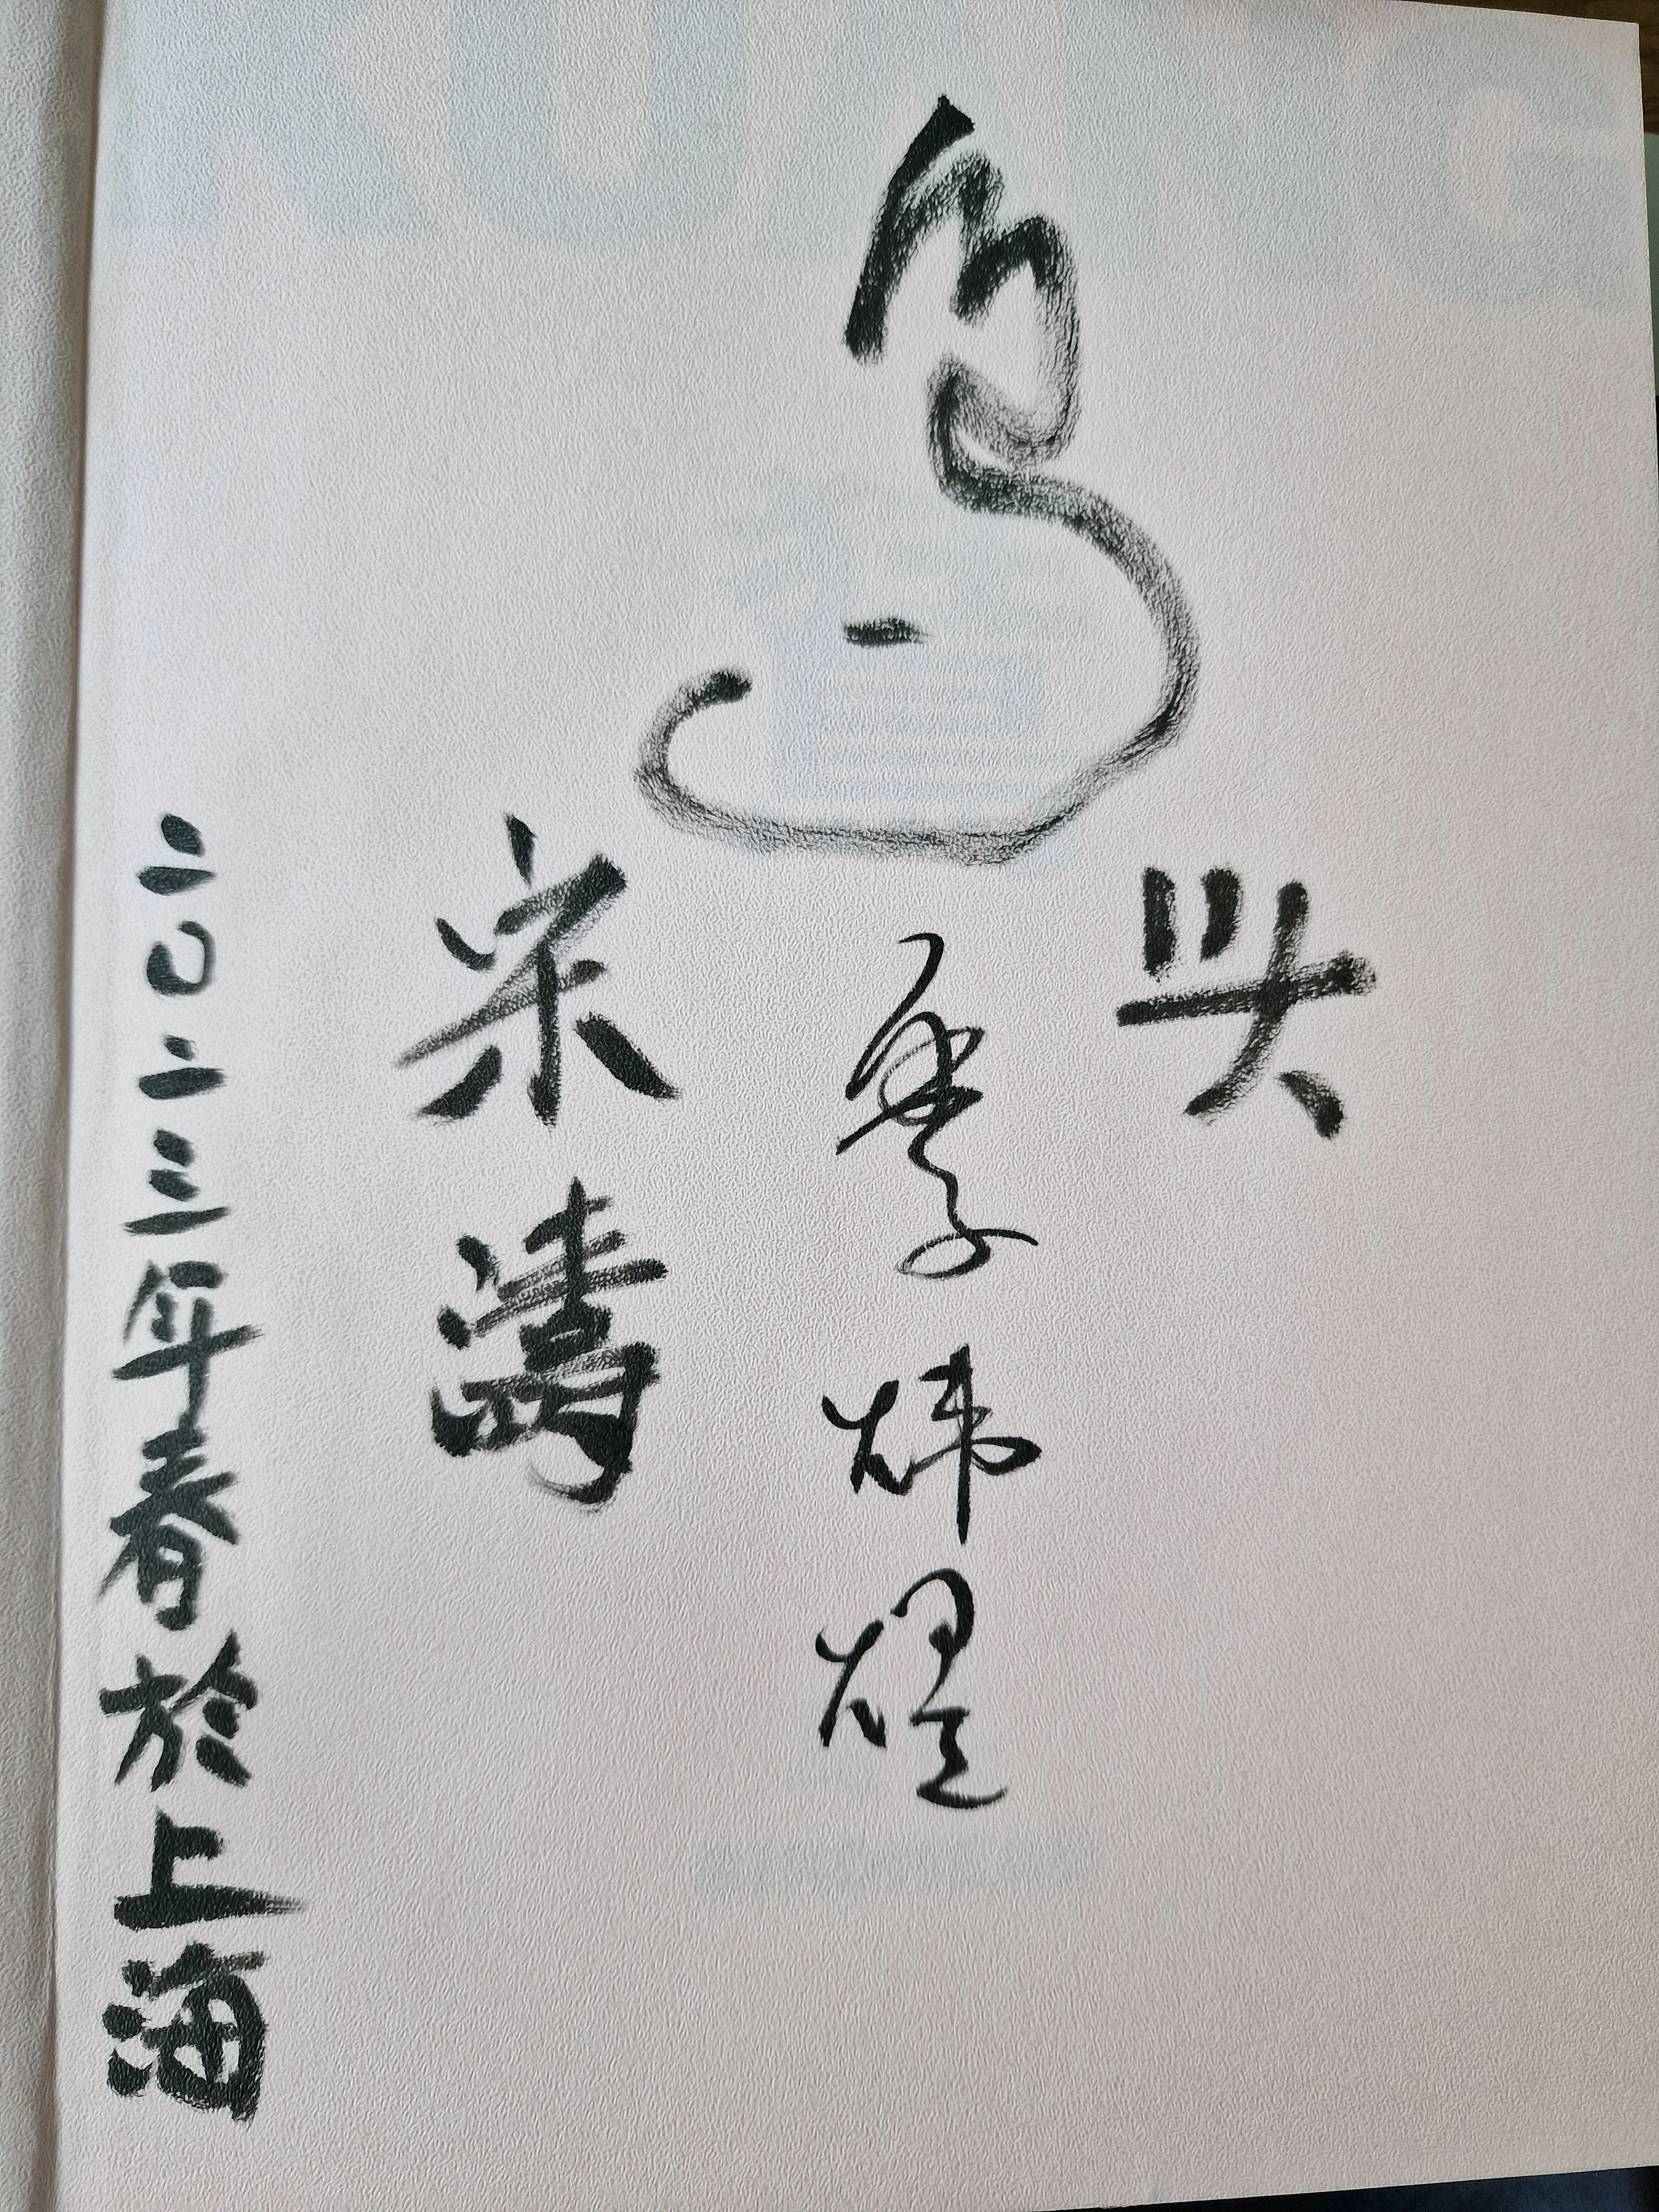 头
季炜煜
宋涛
二〇二三年春於上海